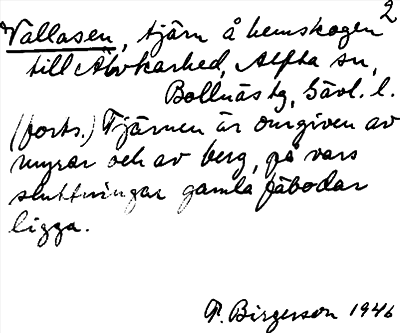 2
Vallasen, tjärn å hemskogen
till Älvkarhed, Alfta sn,
Bollnäs tg, Gävl. l.
(forts.) Tjärnen är omgiven av
myrar och av berg, på vars
sluttningar gamla fäbodar
ligga.
P. Birgerson 1946